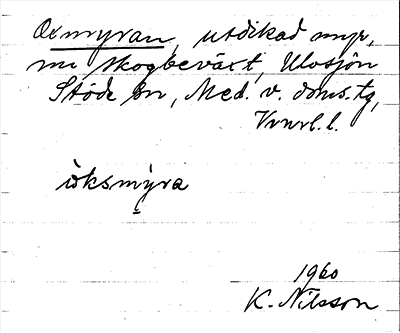 Oxmyran, utdikad myr,
nu skogbeväxt, Ulvsjön
Stöde sn, Med. v. doms.tg,
Vnrl.l.
òksmýra
1960
K. Nilsson